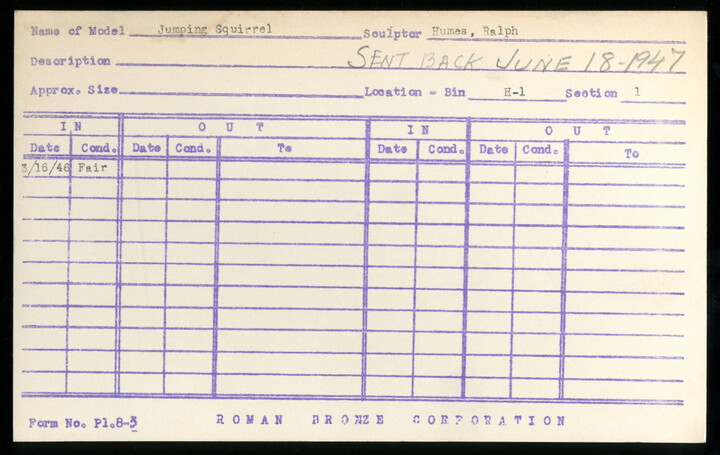 Name of Model Jumping Squirrel Sculptor Humes, Ralph
Description SENT BACK JUNE 18-1947
Approx. Size Location - Bin H-1 Section 1
IN OUT IN OUT
Date Cond. Date Cond. To Date Cond. Date Cond. To
3/16/46 Fair
Form No. Pl.8-3 ROMAN BRONZE CORPORATION